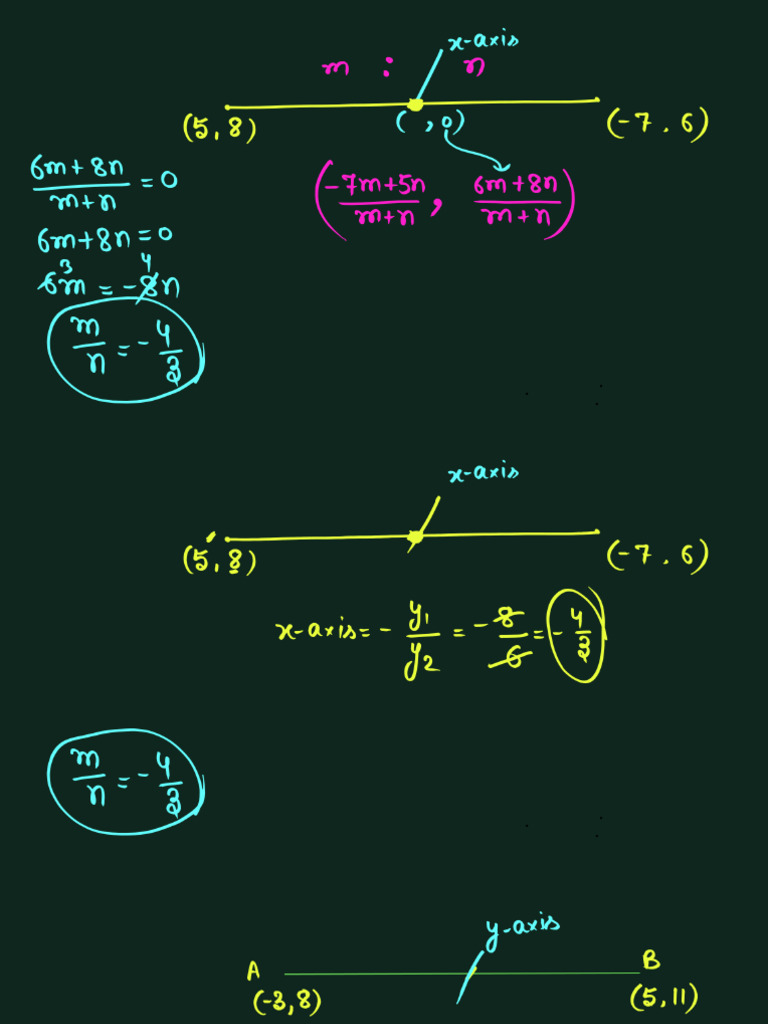 x-axis
m : n
(5, 8) ( , 0) (-7, 6)
(-7m+5n/m+n, 6m+8n/m+n)
6m+8n/m+n = 0
6m+8n=0
6m = -8n
3 4
m/n = -4/3
x-axis
(5, 8) (-7, 6)
x-axis = - y₁/y₂ = -8/6 = -4/3
m/n = -4/3
y-axis
A B
(-3,8) (5,11)